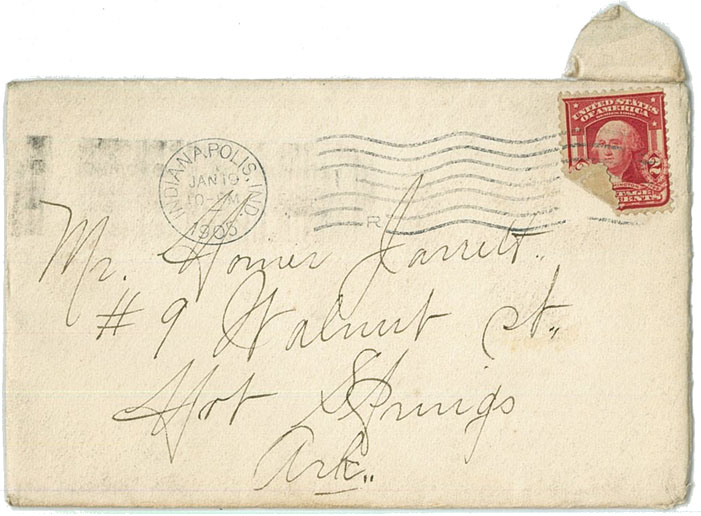 INDIANAPOLIS, IND.
JAN 19
10-PM
1905
R
UNITED STATES
OF AMERICA
2
CENTS
Mr. Homer Jarrett.
#9 Walnut st.,
Hot Springs
Ark.,